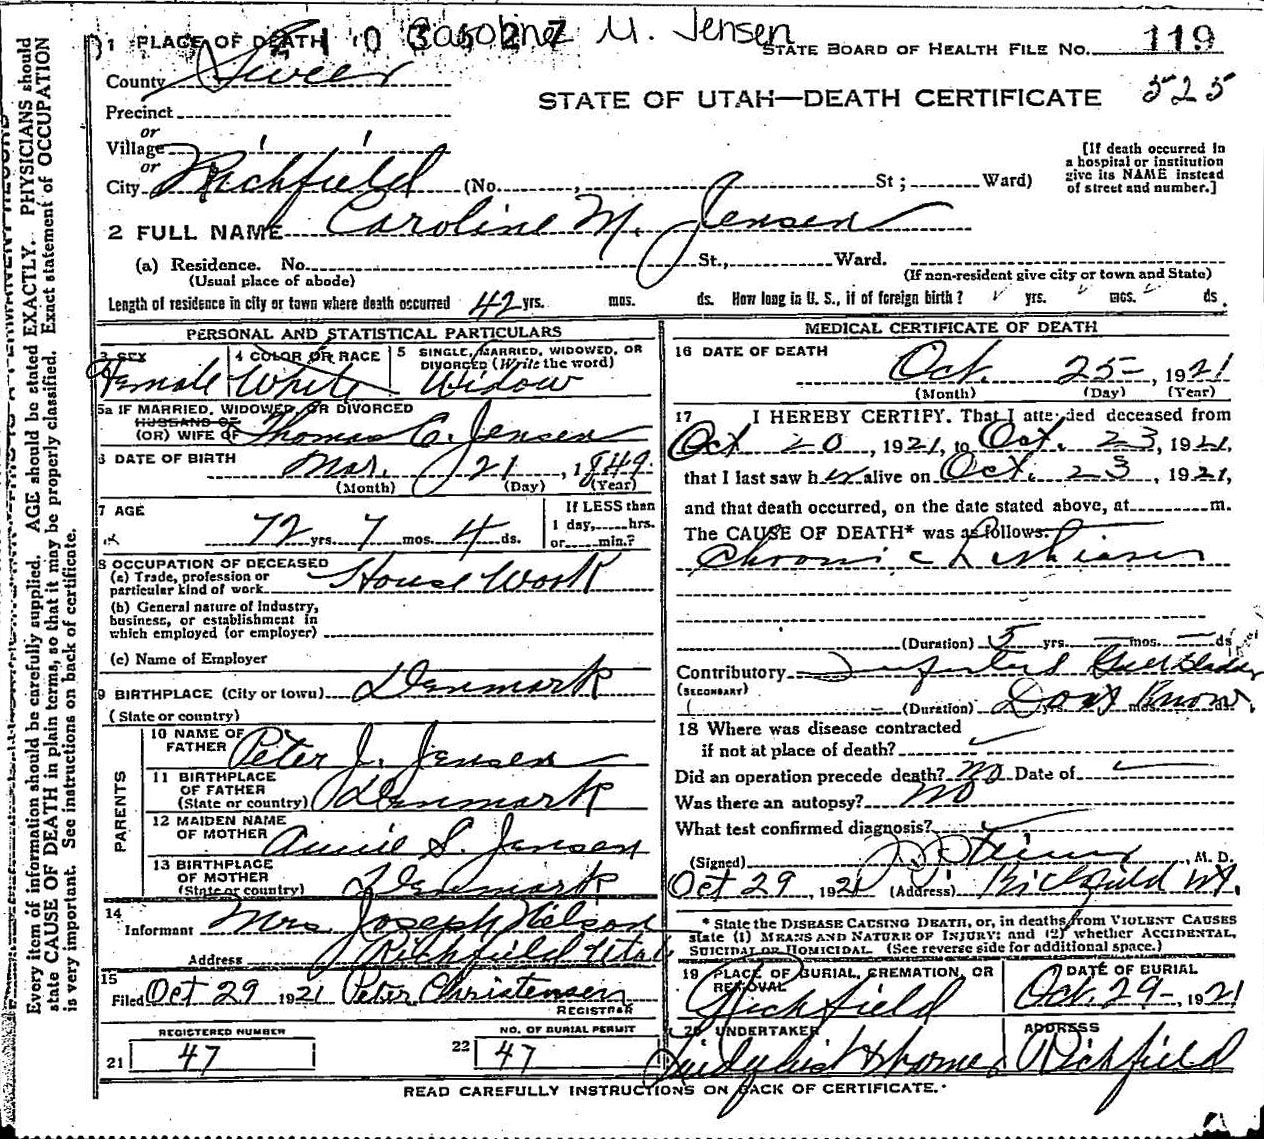 Caroline M. Jensen
1 PLACE OF DEATH
STATE BOARD OF HEALTH FILE NO. 119
County Sevier
STATE OF UTAH—DEATH CERTIFICATE 525
Precinct
or
Village
or
City Richfield (No. , St ; Ward)
[If death occurred in
a hospital or institution
give its NAME instead
of street and number.]
2 FULL NAME Caroline M. Jensen
(a) Residence. No. St., Ward.
(Usual place of abode)
(If non-resident give city or town and State)
Length of residence in city or town where death occurred 42 yrs. mos. ds. How long in U. S., if of foreign birth ? yrs. mos. ds.
PERSONAL AND STATISTICAL PARTICULARS
3 SEX
Female
4 COLOR OR RACE
White
5 SINGLE, MARRIED, WIDOWED, OR
DIVORCED (Write the word)
Widow
5a IF MARRIED, WIDOWED, OR DIVORCED
HUSBAND OF
(OR) WIFE OF Thomas C. Jensen
6 DATE OF BIRTH
Mar. 21, 1849.
(Month) (Day) (Year)
7 AGE
72 yrs. 7 mos. 4 ds.
If LESS than
1 day, hrs.
or min.?
8 OCCUPATION OF DECEASED
(a) Trade, profession or
particular kind of work House Work
(b) General nature of Industry,
business, or establishment in
which employed (or employer)
(c) Name of Employer
9 BIRTHPLACE (City or town) Denmark
(State or country)
PARENTS
10 NAME OF
FATHER Peter J. Jensen
11 BIRTHPLACE
OF FATHER
(State or country) Denmark
12 MAIDEN NAME
OF MOTHER Annie S. Jensen
13 BIRTHPLACE
OF MOTHER
(State or country) Denmark
14
Informant Mrs Joseph Nelson
Address Richfield Utah
15
Filed Oct 29 1921 Peter Christensen
REGISTRAR
REGISTERED NUMBER
21 47
NO. OF BURIAL PERMIT
22 47
MEDICAL CERTIFICATE OF DEATH
16 DATE OF DEATH
Oct. 25-, 1921
(Month) (Day) (Year)
17 I HEREBY CERTIFY. That I attended deceased from
Oct 20, 1921, to Oct. 23, 1921,
that I last saw her alive on Oct. 23, 1921,
and that death occurred, on the date stated above, at m.
The CAUSE OF DEATH* was as follows:
Chronic
(Duration) 5 yrs. — mos. — ds
Contributory Gall Bladder
(SECONDARY)
(Duration) Dont Know
18 Where was disease contracted
if not at place of death?
Did an operation precede death? No Date of
Was there an autopsy? No
What test confirmed diagnosis?
(Signed) , M. D.
Oct 29, 1921 (Address) Richfield Ut.
* State the DISEASE CAUSING DEATH, or, in deaths from VIOLENT CAUSES
state (1) MEANS AND NATURE OF INJURY; and (2) whether ACCIDENTAL,
SUICIDAL OR HOMICIDAL. (See reverse side for additional space.)
19 PLACE OF BURIAL, CREMATION, OR
REMOVAL
Richfield
DATE OF BURIAL
Oct. 29-, 1921
20 UNDERTAKER
ADDRESS
Richfield
READ CAREFULLY INSTRUCTIONS ON BACK OF CERTIFICATE.
Every item of information should be carefully supplied. AGE should be stated EXACTLY. PHYSICIANS should
state CAUSE OF DEATH in plain terms, so that it may be properly classified. Exact statement of OCCUPATION
is very important. See instructions on back of certificate.